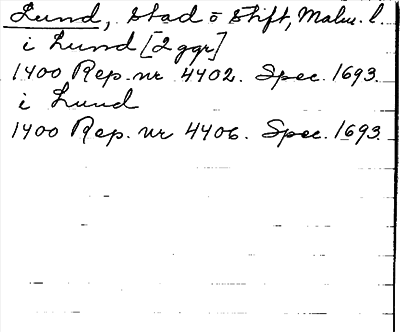 Lund, stad o stift, Malm. l.
i Lund [2 ggr]
1400 Rep. nr 4402. Spec. 1693.
i Lund
1400 Rep. nr 4406. Spec. 1693.